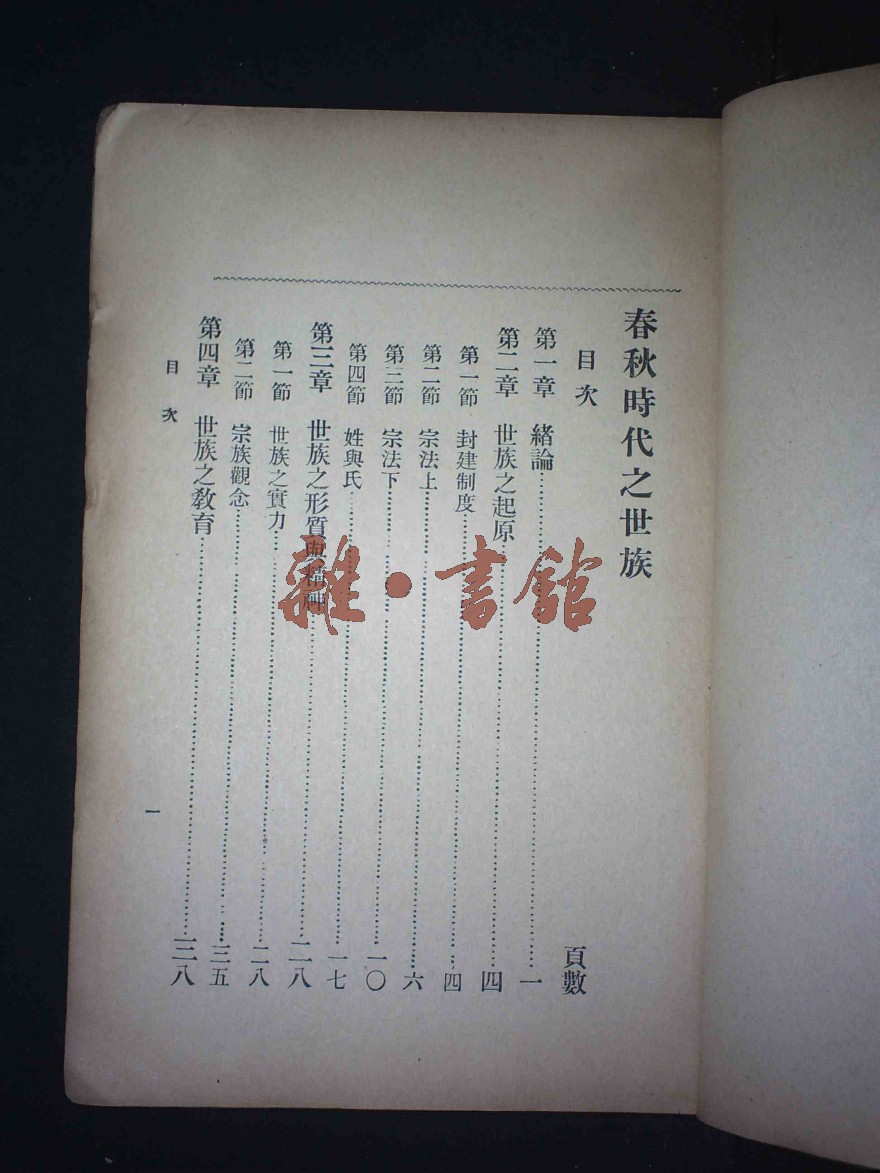 春秋時代之世族
目次
頁數
第一章 緒論⋯⋯一
第二章 世族之起原⋯⋯四
第一節 封建制度⋯⋯四
第二節 宗法上⋯⋯六
第三節 宗法下⋯⋯一〇
第四節 姓與氏⋯⋯一七
第三章 世族之形質與精神⋯⋯二八
第一節 世族之實力⋯⋯二八
第二節 宗族觀念⋯⋯三五
第四章 世族之教育⋯⋯三八
目次
一
雜·書館